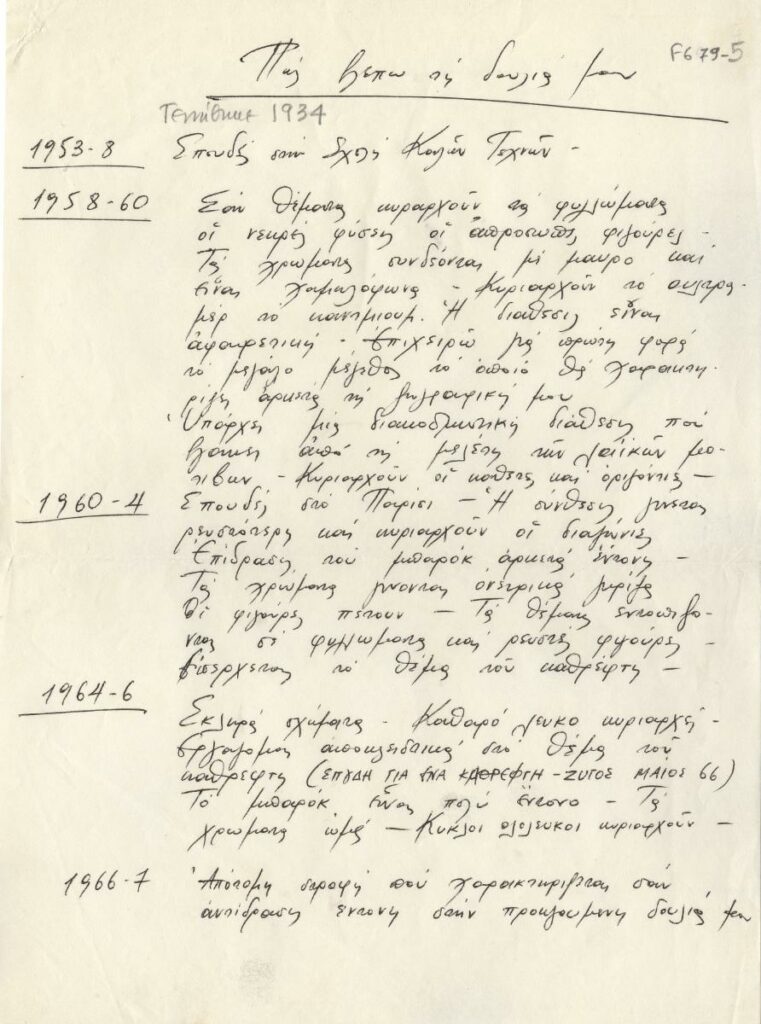 F679-5
Πώς βλέπω τη δουλιά μου
Γεννήθηκε 1934
1953-8 Σπουδές στην Σχολή Καλών Τεχνών -
1958-60 Σαν θέματα κυριαρχούν τα φυλλώματα
οἱ νεκρές φύσεις οἱ ἀπρόσωπες φιγούρες -
Τά χρώματα συνδέονται μέ μαύρο και
εἶναι χαμηλόφωνα - Κυριαρχούν το ουλτρα-
μέρ το κάντμιουμ. Ἡ διάθεσις εἶναι
ἀφαιρετική - Ἐπιχειρῶ γιά πρώτη φορά
τό μεγάλο μέγεθος το ὁποίο θά χαρακτη-
ρίζει ἀρκετά τή ζωγραφική μου
Ὑπάρχει μιά διακοσμητική διάθεση πού
βγαίνει ἀπό τή μελέτη τῶν λαϊκών μο-
τίβων - Κυριαρχούν οἱ κάθετες και ὁριζόντιες -
1960-4 Σπουδές στό Παρίσι - Ἡ σύνθεσις γίνεται
ρευστότερη καί κυριαρχοῦν οἱ διαγώνιες
Ἐπίδραση τοῦ μπαρόκ ἀρκετά ἔντονη -
Τά χρώματα γίνονται ὀνειρικά γκρίζα
Οἱ φιγούρες πετουν - Τά θέματα εντοπίζο-
νται σέ φυλλώματα καί ρευστές φιγούρες -
Εἰσέρχεται τό θέμα τοῦ καθρέφτη -
1964-6
Σκληρά σχήματα - Καθαρό λευκο κυριαρχεί -
Εργάζομαι ἀποκλειστικά στό θέμα τοῦ
καθρέφτη (ΣΠΟΥΔΗ ΓΙΑ ΕΝΑ ΚΑΘΡΕΦΤΗ - ΖΥΓΟΣ ΜΑΙΟΣ 66)
Τό μπαρόκ εἶναι πολύ ἔντονο - Τά
χρώματα ὠμά - Κύκλοι ολόλευκοι κυριαρχοῦν -
1966-7 Ἀπότομη στροφή πού χαρακτηρίζεται σάν
ἀντίδραση έντονη στήν προηγούμενη δουλιά μου